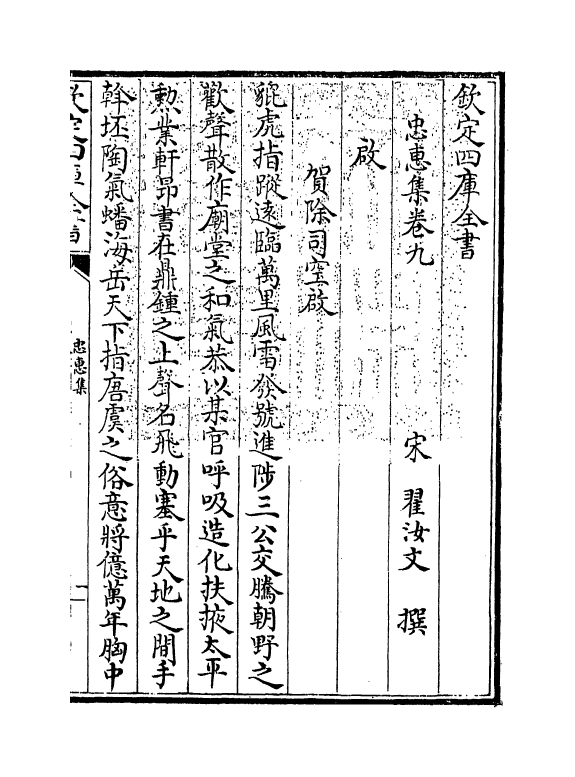 欽定四庫全書
忠惠集卷九　　　宋　翟汝文　撰
啟
賀除司空啟
貔虎指蹤遠臨萬里風雷發號進陟三公交騰朝野之
歡聲散作廟堂之和氣恭以某官呼吸造化扶掖太平
勲業軒昻書在鼎鍾之上聲名飛動塞乎天地之間手
斡坯陶氣蟠海岳天下指唐虞之俗意將億萬年胸中
欽定四庫全書
忠惠集
一